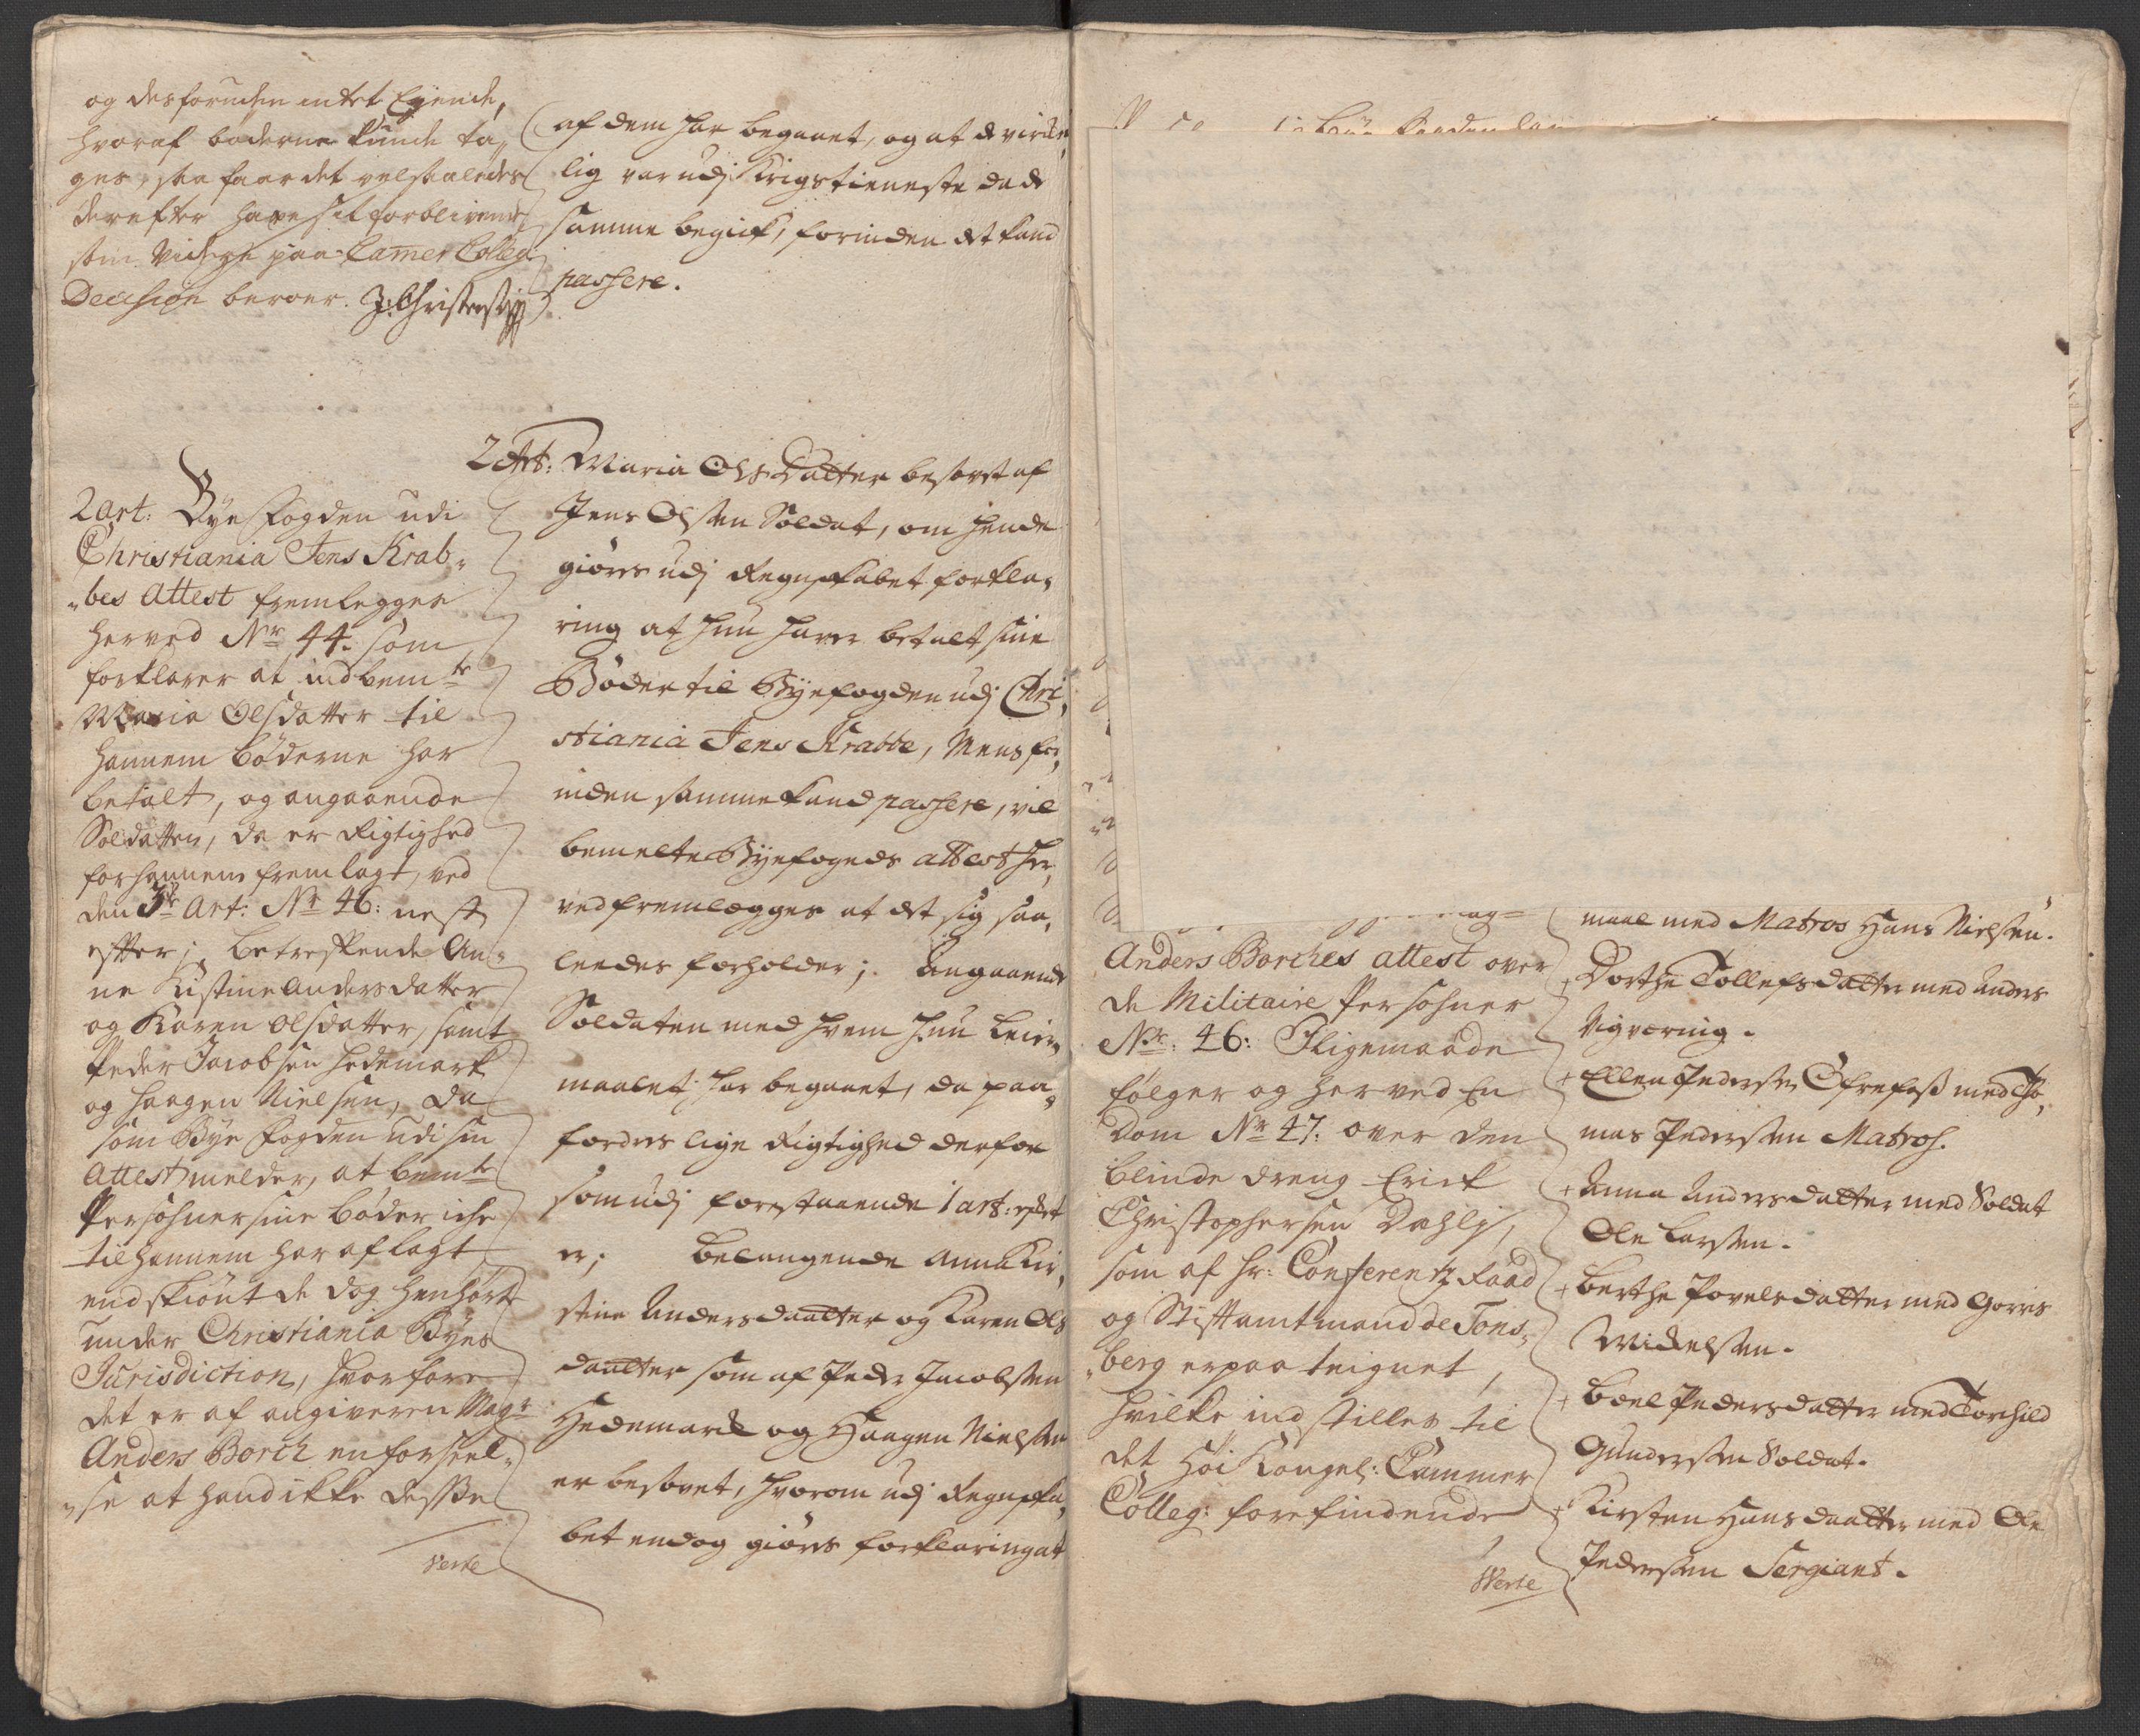 og desforuden intet Eyende,
hvoraf bøderne kunde ta„
ges, saa faar det velsaaledes
derefter have sit forblivende
som Vidre paa Camer Colleg:
Decision beroer. J: Christens
af dem har begaaet, og at de virke„
lig var udj Krigstieneste da de
samme begick, forinden det kand
passere.
2 Art: Bye fogden udi
Christiania Jens Krab„
„bes Attest fremlegges
herved Nr 44. som
forklarer at indbemte
Maria Olsdatter til
hannem bøderne har
betalt, og angaaende
Soldatten, da er Rigtighed
for hannem fremlagt, ved
den 3de Art: Nr 46: nest
efter; betreffende An„
ne Kistine Andersdatter
og Karen Olsdatter, samt
Peder Jacobsen Hedemark
og Haagen Nielsen, da
som Bye fogden udi sin
Attest melder, at bemte
Persohner sine bøder iche
til hannem har aflagt
endskiønt de dog henhørte
under Christiania Byes
Jurisdiction, hvorfore
det er af angiveren Magr
Anders Borch en forseel„
„se at hand ikke desse
Verte
2 Art: Maria Ols Datter besovet af
Jens Olsen Soldat, om hende
giøres udj Regnskabet forkla„
ring at hun haver betalt sine
Bøder til Byefogden udj Chri„
stiania Jens Krabbe, Mens for„
inden samme kand passere, vil
bemelte Byefogeds attest her„
ved fremlægges at det sig saa„
leedes forholder; Angaaende
Soldaten med hvem hun Leier„
maalet har begaaet, da paa„
fordres lige Rigtighed derfor
som udj forestaaende 1 art:
er; belangende Anna Kir„
stine Andersdaatter og Karen Ols
daatter som af Peder Jacobsen
Hedemark og Haagen Nielsen
er besovet, hvorom udj Regnska„
bet endog giøres forklaring at
Anders Borches attest over
de Militaire Persohner
Nr: 46: Iligemaade
følger og herved En
Dom Nr 47: over den
blinde dreng Erick
Christophersen Dahly,
som af Hr: Conferentz Raad
og Stiftamtmand de Tons„
„berg er paateignet,
hvilke indstilles til
det høi Kongel: Cammer
Colleg: forefindende
Verte
maal med Matros Hans Nielsen.
+ Dorthe Tollefsdatter med Anders
Vigværing.
+ Ellen Peders med Tho„
mas Pedersen Matros.
+ Anna Andersdatter med Soldat
Ole Larsen.
+ Berthe Povelsdatter med Gorres
Mickelsen.
+ Boel Pedersdatter med Torchild
Gundersen Soldat.
+ Kirsten Hansdaatter med Ole
Pedersen Sergiant.